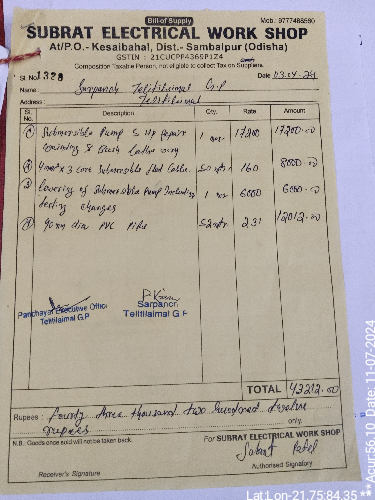 Bill of Supply
Mob.: 9777488560
SUBRAT ELECTRICAL WORK SHOP
At/P.O.- Kesaibahal, Dist.- Sambalpur (Odisha)
GSTIN : 21CUCPP4369P1Z4
Composition Taxable Person, not eligible to collect Tax on Suppliers.
Sl. No. 1328 Date 03.04.24
Name : Sarpanch Telitilaimal G.P
Address : Telitilaimal
Sl. No. Description Qty. Rate Amount
1 Submersible Pump 5 Hp Repair 1 nos 17200 17200.00
2 4mm² x 3 core Submersible flat Cable 50 mtr 160 8000.00
3 Lowering of Submersible Pump Including 1 nos 6000 6000.00
testing charges
4 90 mm dia PVC Pipe 52 mtr 231 12012.00
Panchayat Executive Officer
Telitilaimal G.P
Sarpanch
Telitilaimal G.P
TOTAL 43212.00
Rupees : fourty three thousand two hundred twelve
rupees only.
N.B. Goods once sold will not be taken back.
For SUBRAT ELECTRICAL WORK SHOP
Subrat Patel
Receiver's Signature
Authorised Signatory
Lat:Lon-21.75:84.35
***Acur:56.10, Date, 11-07-2024